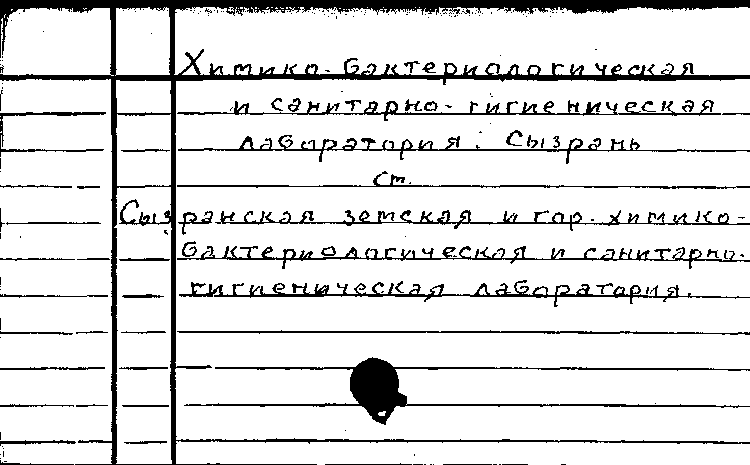 Химико-бактериологическая
и санитарно-гигиеническая
лаборатория. Сызрань
см.
Сызранская земская и гор. химико-
бактериологическая и санитарно-
гигиеническая лаборатория.